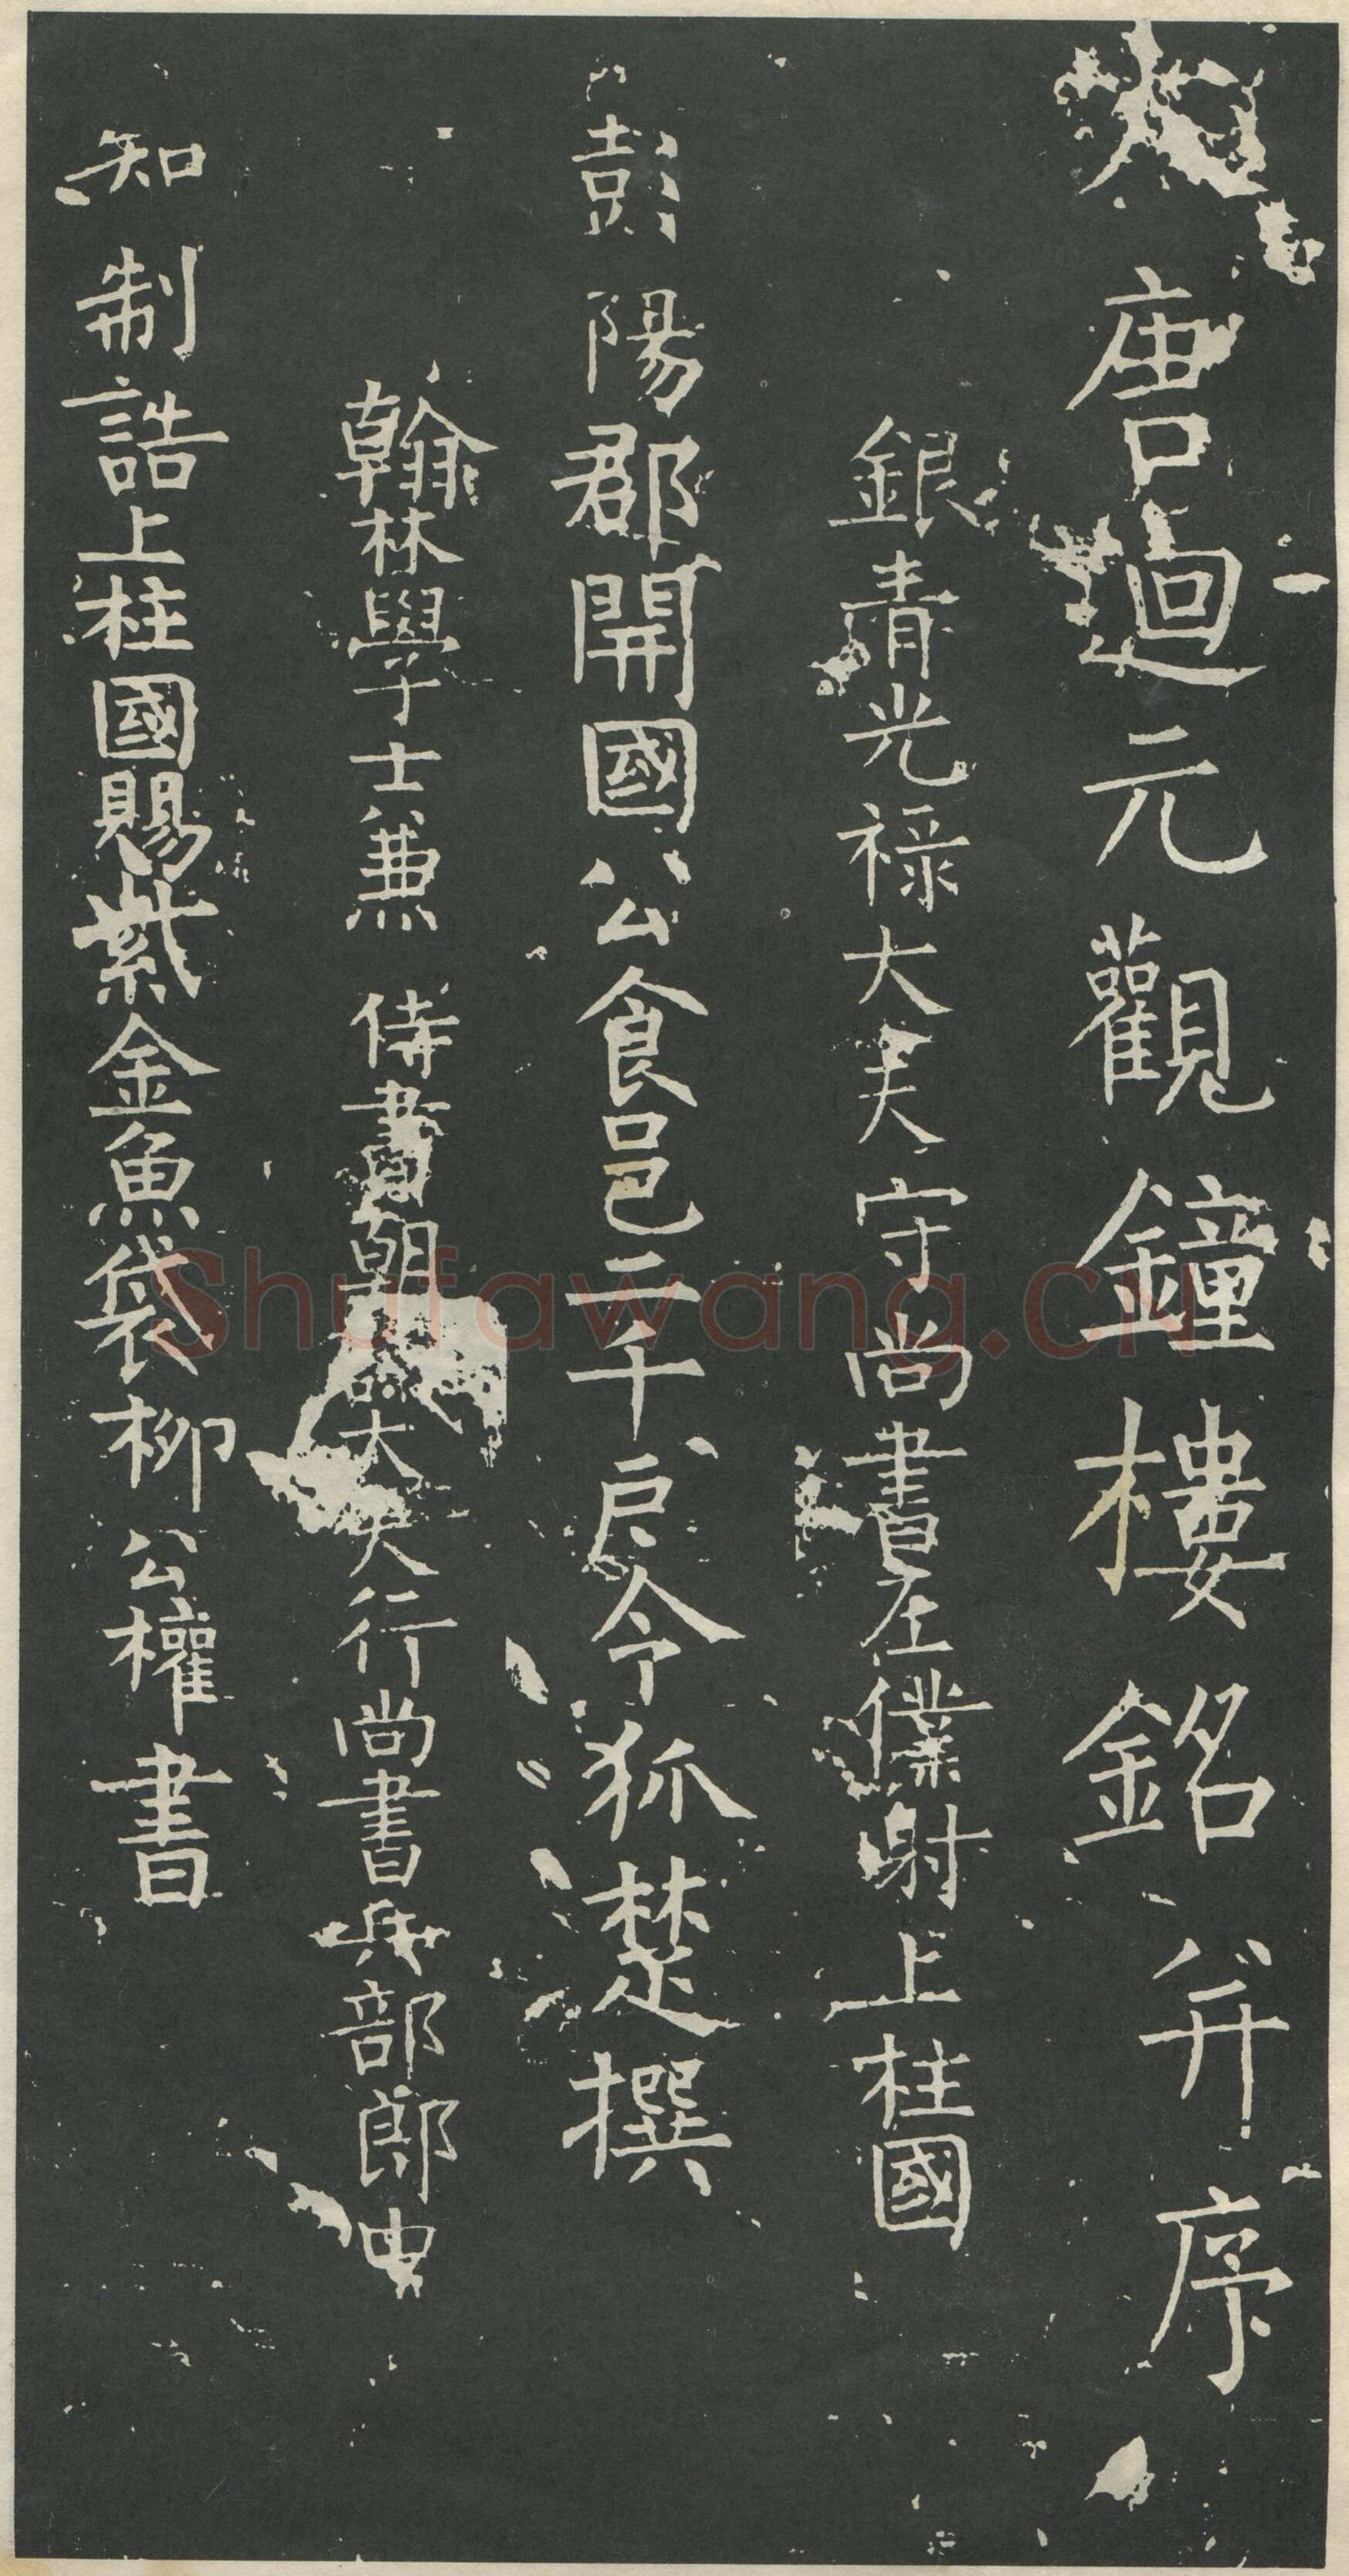 大唐迴元觀鐘樓銘并序
銀青光祿大夫守尚書左僕射上柱國
彭陽郡開國公食邑二千户令狐楚撰
翰林學士兼侍書朝議大夫行尚書兵部郎中
知制誥上柱國賜紫金魚袋柳公權書
Shufawang.CN